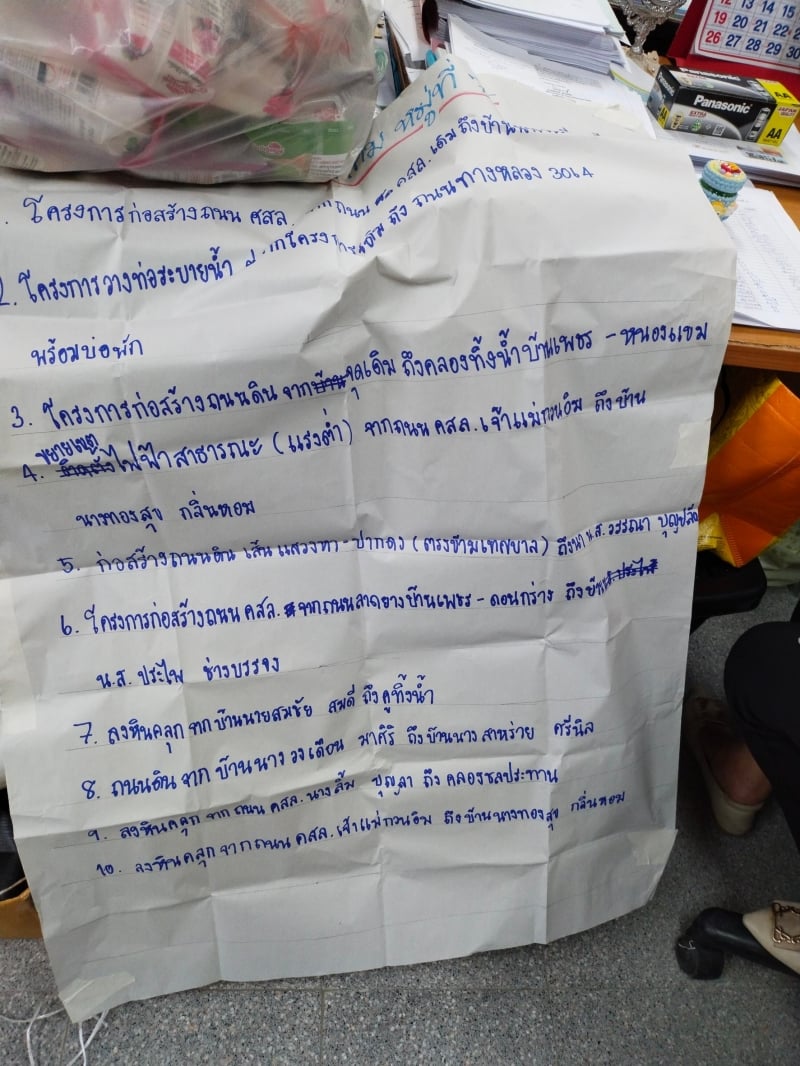 หมู่ที่
1. โครงการก่อสร้างถนน คสล. ถนน คสล. เดิม ถึงบ้าน
2. โครงการวางท่อระบายน้ำ ถึง ถนนทางหลวง 3064
พร้อมบ่อพัก
3. โครงการก่อสร้างถนนดิน จากจุดเดิม ถึงคลองทิ้งน้ำบ้านเพชร - หนองแขม
4. ขยายเขตไฟฟ้าสาธารณะ (แรงต่ำ) จากถนน คสล. เจ้าแม่กวนอิม ถึงบ้าน
นางทองสุข กลิ่นหอม
5. ก่อสร้างถนนดิน เส้น แสวงหา - ปากดง (ตรงข้ามเทศบาล) ถึงนา น.ส. วรรณา
6. โครงการก่อสร้างถนน คสล. จากถนนลาดยางบ้านเพชร - ดอนกร่าง ถึงบ้าน
น.ส. ประไพ ช่างบรรจง
7. ลงหินคลุก จากบ้านนายสมชัย สมดี ถึงคูทิ้งน้ำ
8. ถนนดิน จาก บ้านนาง วงเดือน มาศิริ ถึงบ้านนาง สาหร่าย ศรีนิล
9. ลงหินคลุก จาก ถนน คสล. นางลิ้ม บุญลา ถึง คลองชลประทาน
10. ลงหินคลุก จากถนน คสล. เจ้าแม่กวนอิม ถึงบ้านนางทองสุข กลิ่นหอม
Panasonic
AA
AA
12 13 14 15
19 20 21 22
26 27 28 29 30